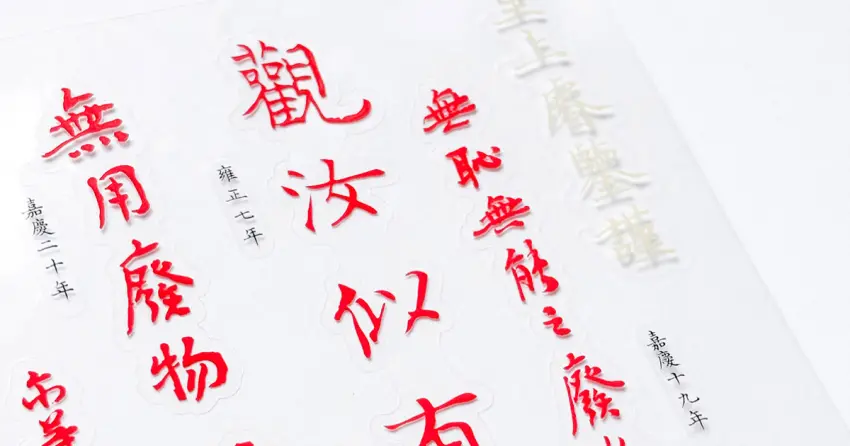 皇上睿鑒謹
嘉慶十九年
無恥無能之廢
觀汝似有
雍正七年
無用廢物
嘉慶二十年